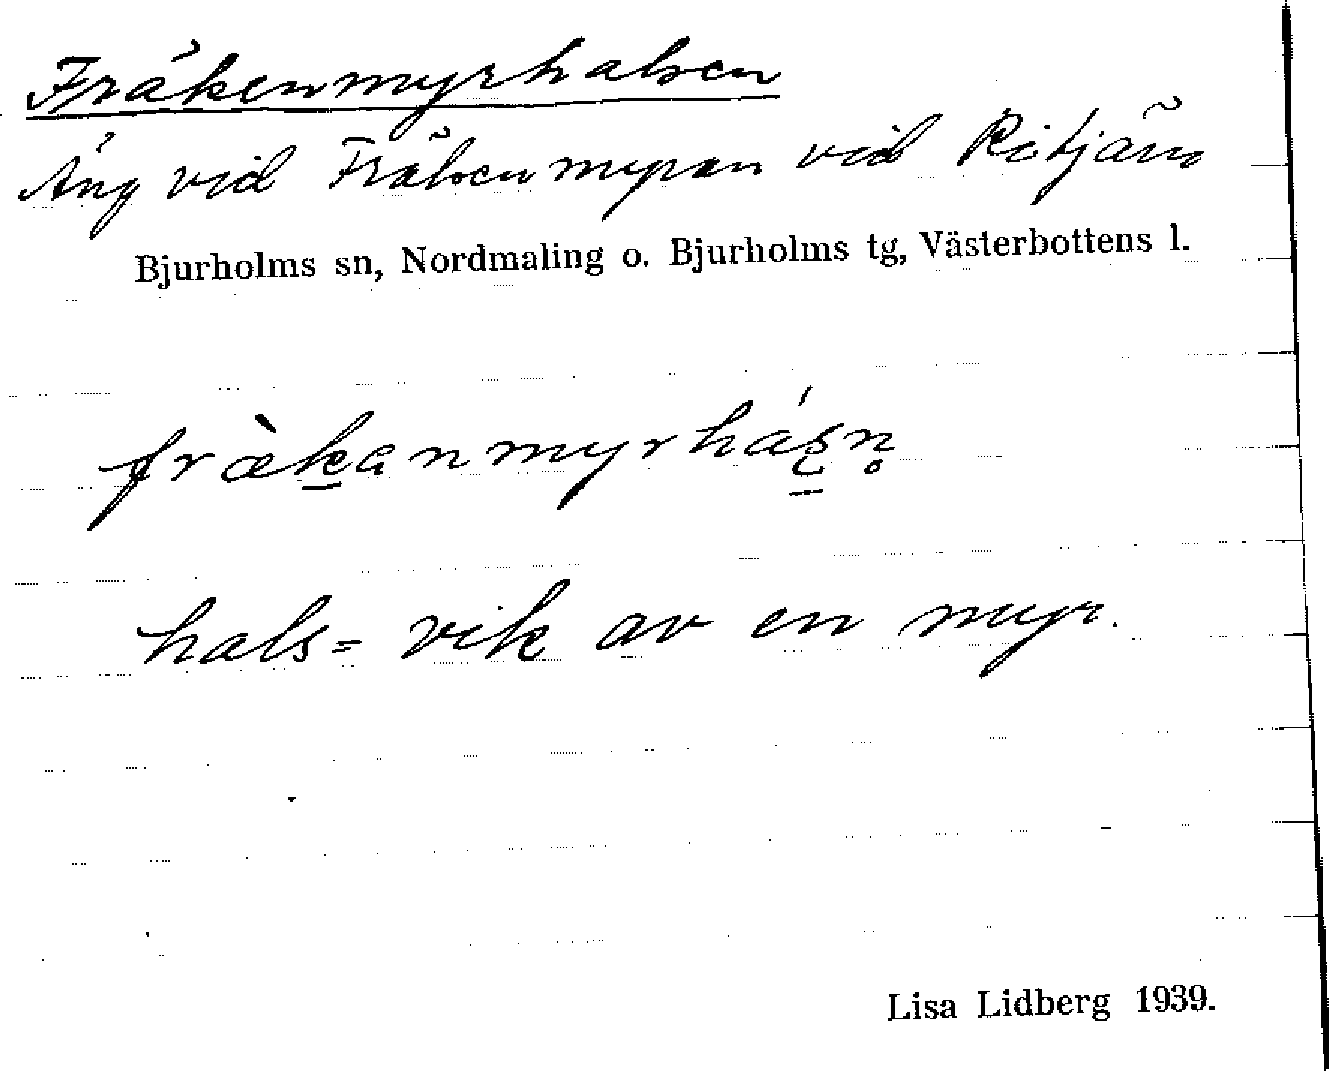 Fräkenmyrhalsen
Äng vid Fräkenmyran vid Ritjärn
Bjurholms sn, Nordmaling o. Bjurholms tg, Västerbottens l.
fræ̀kanmyrhásn̥
hals = vik av en myr.
Lisa Lidberg 1939.